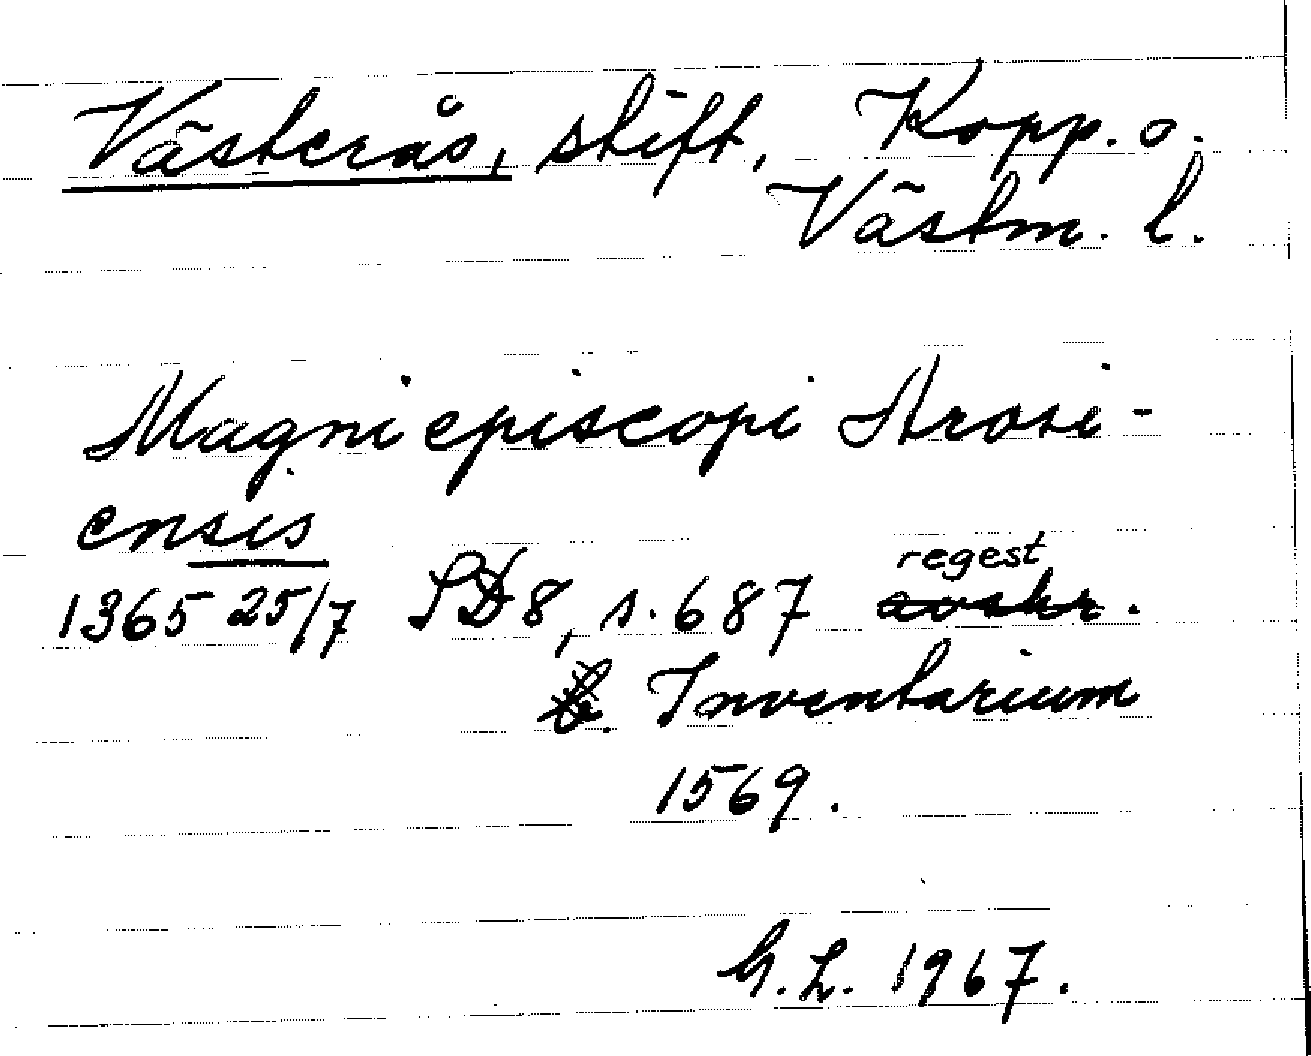 Västerås, stift, Kopp. o.
Västm. l.
Magni episcopi Arosi-
ensis
regest
1365 25/7 SD8, s. 687 avskr.
Inventarium
1569.
G.L. 1967.